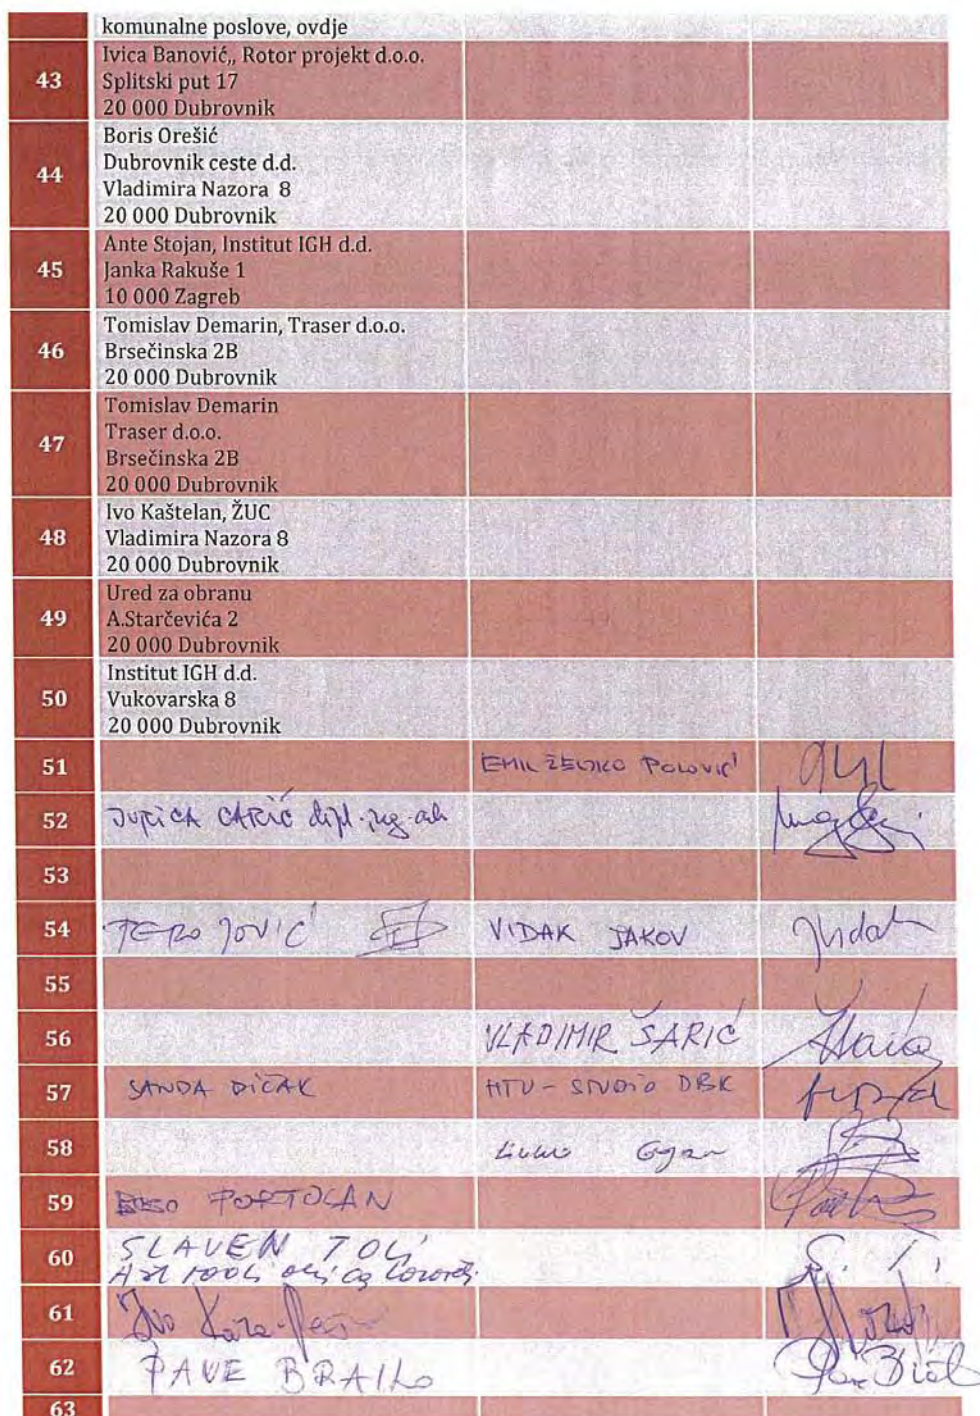 komunalne poslove, ovdje
43
Ivica Banović,, Rotor projekt d.o.o.
Splitski put 17
20 000 Dubrovnik
44
Boris Orešić
Dubrovnik ceste d.d.
Vladimira Nazora 8
20 000 Dubrovnik
45
Ante Stojan, Institut IGH d.d.
Janka Rakuše 1
10 000 Zagreb
46
Tomislav Demarin, Traser d.o.o.
Brsečinska 2B
20 000 Dubrovnik
47
Tomislav Demarin
Traser d.o.o.
Brsečinska 2B
20 000 Dubrovnik
48
Ivo Kaštelan, ŽUC
Vladimira Nazora 8
20 000 Dubrovnik
49
Ured za obranu
A.Starčevića 2
20 000 Dubrovnik
50
Institut IGH d.d.
Vukovarska 8
20 000 Dubrovnik
51
EMIL ŽELJKO POLOVIĆ
52
JURICA CARIĆ dipl.ing.arh
53
54
PERO JOVIĆ VIDAK JAKOV
55
56
VLADIMIR ŠARIĆ
57
SANDA DIČAK HTV - STUDIO DBK
58
59
PORTOLAN
60
SLAVEN TOLJ
61
Ivo
62
PAVE BRAILO
63